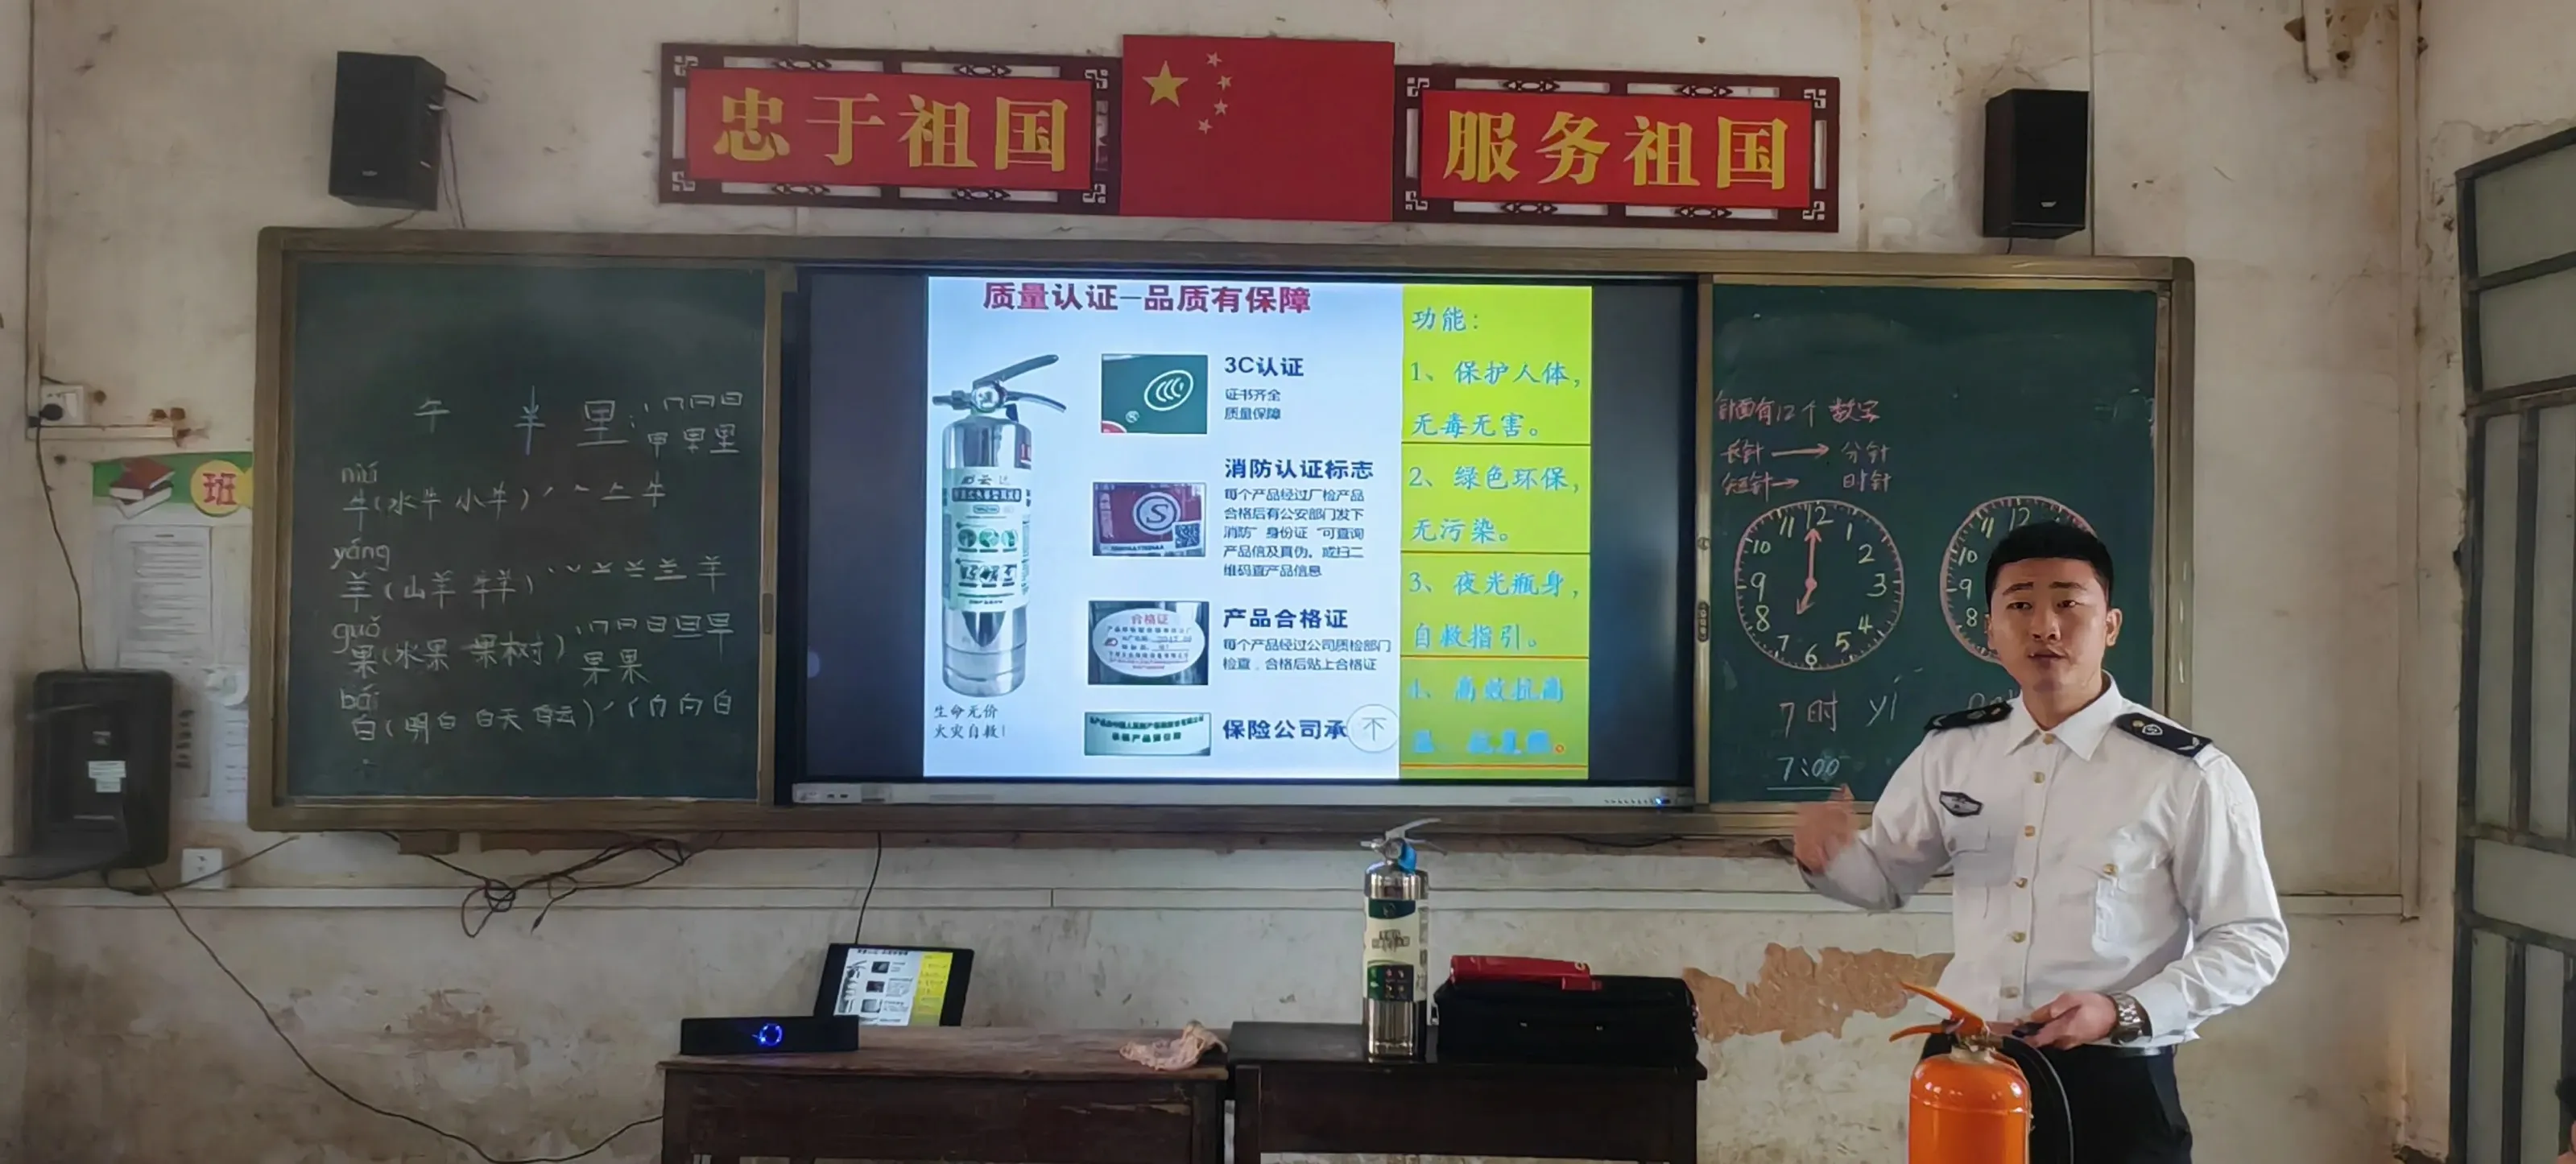 忠于祖国
服务祖国
班
午 半 里:
niú
牛(水牛 小牛)
yáng
羊(山羊 牛羊)
guǒ
果(水果 果树)
bái
白(明白 白天 白云)
质量认证—品质有保障
3C认证
证书齐全
质量保障
消防认证标志
每个产品经过厂检产品
合格后有公安部门发下
消防"身份证"可查询
产品信及真伪。或扫二
维码查产品信息
合格证
产品合格证
每个产品经过公司质检部门
检查,合格后贴上合格证
保险公司承
生命无价
火灾自救!
功能:
1、保护人体,
无毒无害。
2、绿色环保,
无污染。
3、夜光瓶身,
自救指引。
钟面有12个数字
长针 → 分针
短针 → 时针
12 1 2 3 4 5 6 7 8 9 10 11
11 12
10
9
8
7时
7:00